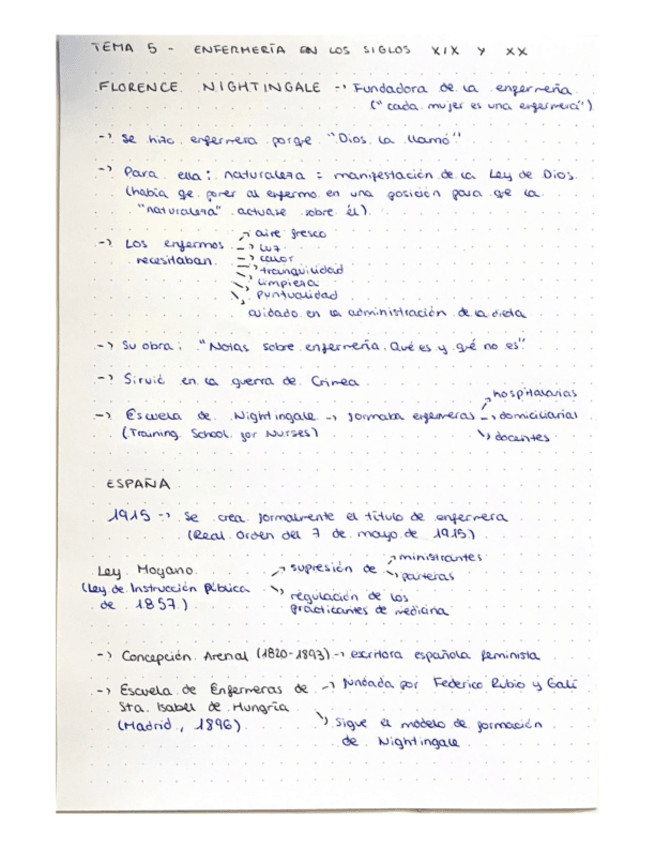 TEMA 5 - ENFERMERÍA EN LOS SIGLOS XIX Y XX
FLORENCE NIGHTINGALE -> Fundadora de la enfermería
("cada mujer es una enfermera")
-> Se hizo enfermera porqe "Dios la llamó"
-> Para ella: naturaleza = manifestación de la Ley de Dios
(había qe poner al enfermo en una posición para qe la
"naturaleza" actuase sobre él)
-> Los enfermos recesitaban
-> aire fresco
-> luz
-> calor
-> tranquilidad
-> limpieza
-> puntualidad
cuidado en la administración de la dieta
-> Su obra: "Notas sobre enfermería. Qué es y qé no es"
-> Sirvió en la guerra de Crimea
-> Escuela de Nightingale -> formaba enfermeras
(Training School for Nurses)
-> hospitalarias
-> domiciliarias
-> docentes
ESPAÑA
1915 -> Se crea formalmente el título de enfermera
(Real Orden del 7 de mayo de 1915)
Ley Moyano
(Ley de Instrucción Pública
de 1857)
-> supresión de
-> ministrantes
-> parteras
-> regulación de los
practicantes de medicina
-> Concepción Arenal (1820-1893) -> escritora española feminista
-> Escuela de Enfermeras de
Sta. Isabel de Hungría
(Madrid, 1896)
-> fundada por Federico Rubio y Galí
-> Sigue el modelo de formación
de Nightingale